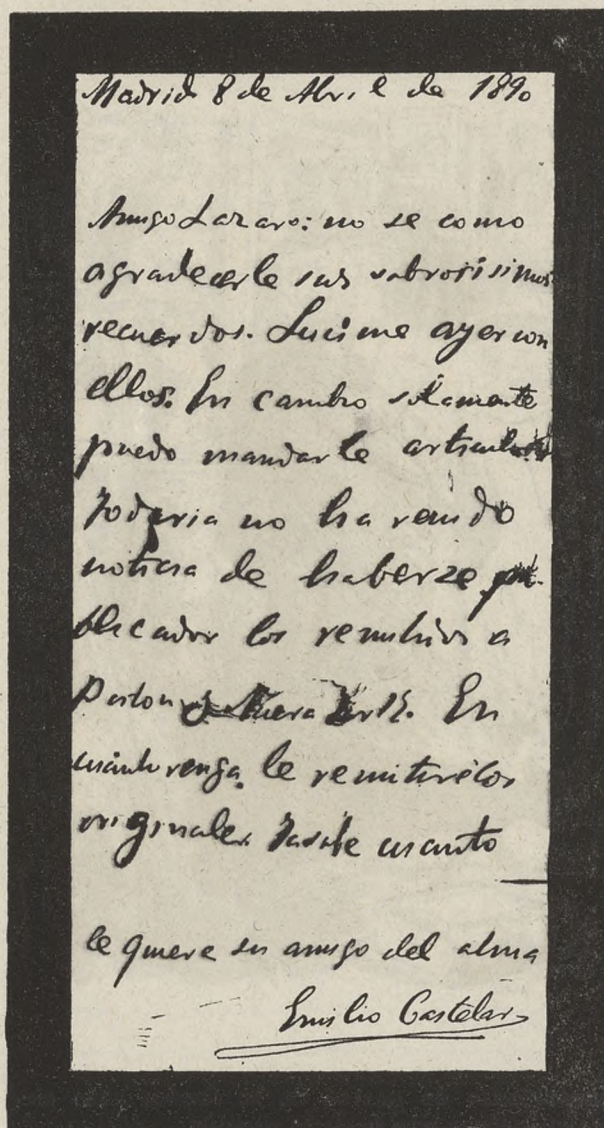 Madrid 8 de Abril de 1890
Amigo Lazaro: no se como
agradecerle sus sabrosisimos
recuerdos. Lucime ayer con
ellos. En cambio solamente
puedo mandarle articulos
Todavia no ha venido
noticia de haberze pu-
blicador los remitidos a
Boston y Nueva York. En
cuanto venga le remitiré los
originales. Sabe cuanto
le quiere su amigo del alma
Emilio Castelar